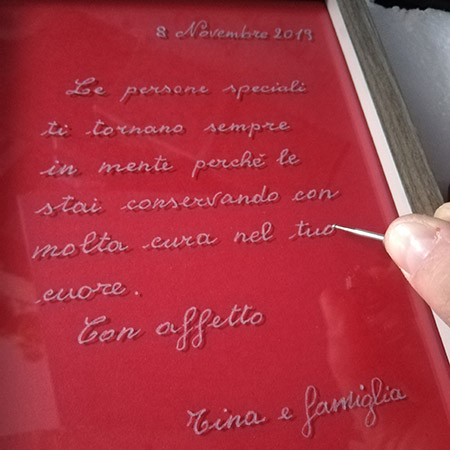 8 Novembre 2019
Le persone speciali
ti tornano sempre
in mente perchè le
stai conservando con
molta cura nel tuo
cuore.
Con affetto
Tina e famiglia